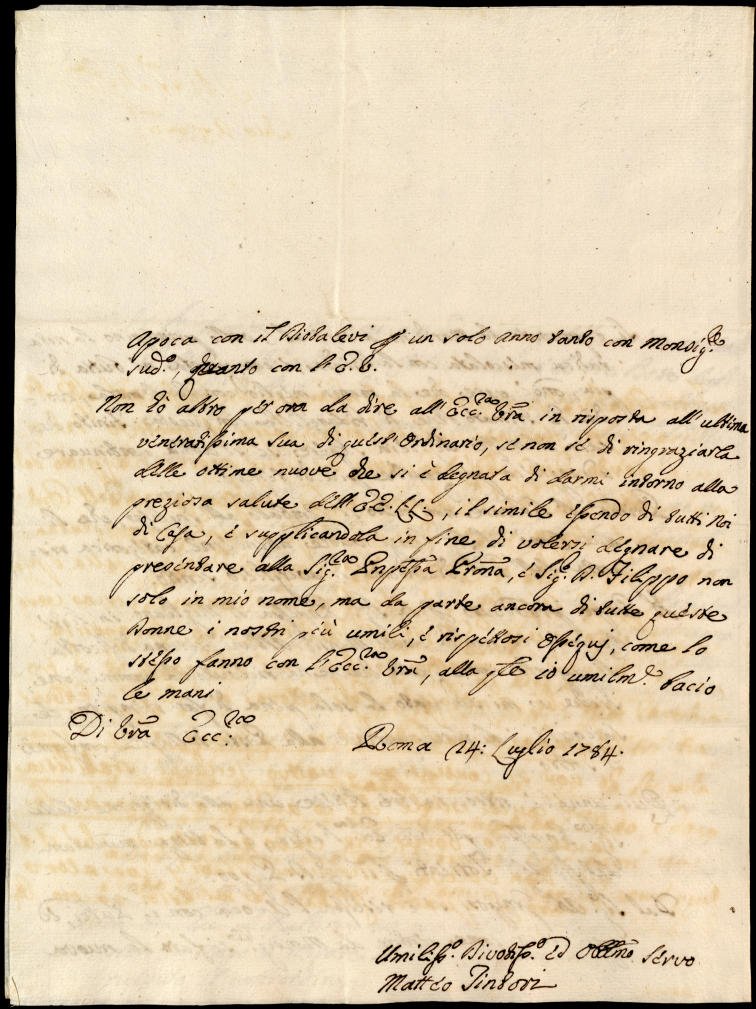 Apoca con il Diodalevi p un solo anno tanto con Monsig.re
sud.o, quanto con l'E.V.
Non hò altro per ora da dire all'Ecc.za Vrã in risposta all'ultima
veneratissima sua di quest'ordinario, se non se di ringraziarla
delle ottime nuove che si è degnata di darmi intorno alla
preziosa salute dell'EE.LL., il simile essendo di tutti Noi
di Casa, è supplicandola in fine di volersi degnare di
presentare alla Sig.ra Pnpessa Prona, è Sig.r D. Filippo non
solo in mio nome, ma da parte ancora di tutte queste
Donne i nostri più umili, è rispettosi ossequj, come lo
stesso fanno con l'Ecc.za Vrã, alla qle io umilm.e bacio
le mani
Di Vrã Ecc.za
Roma 24: Luglio 1784.
Umiliss.o Divotiss.o ed Obblmo Servo
Matteo Tintori